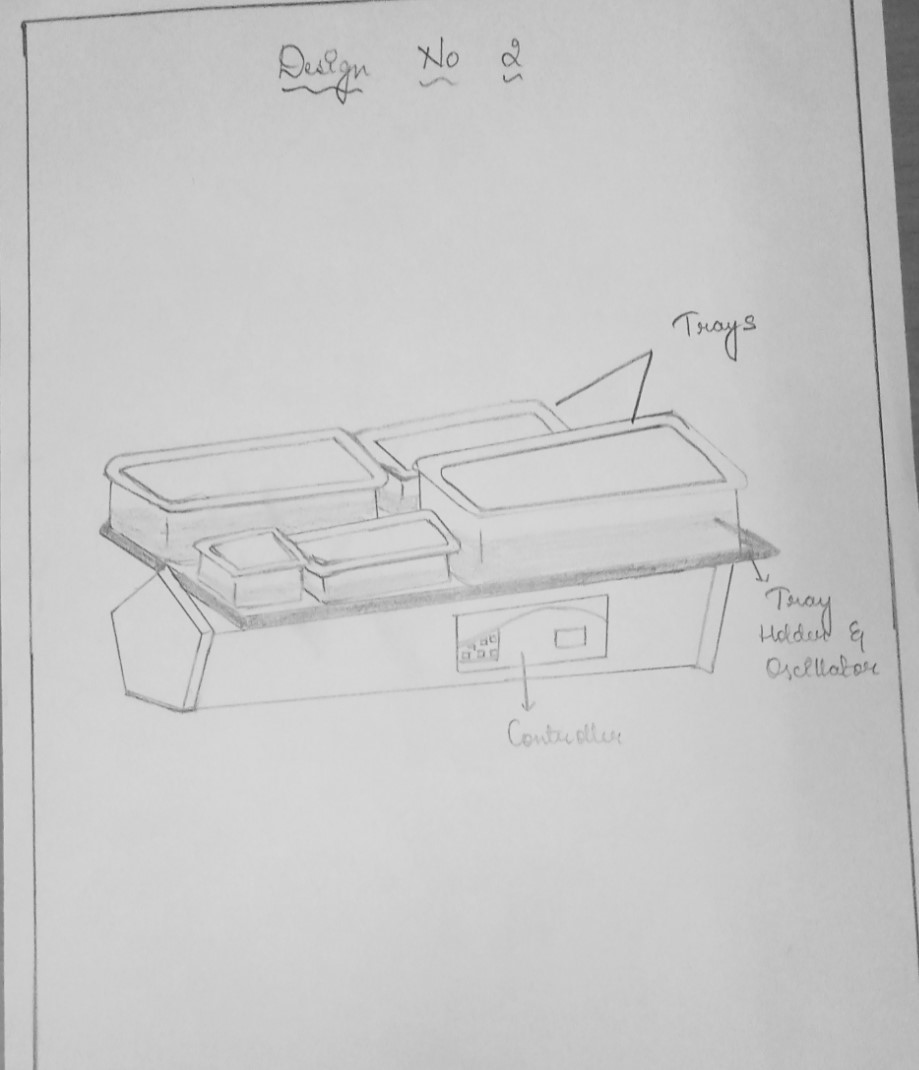 Design No 2
Trays
Tray
Holder &
Oscillator
Controller